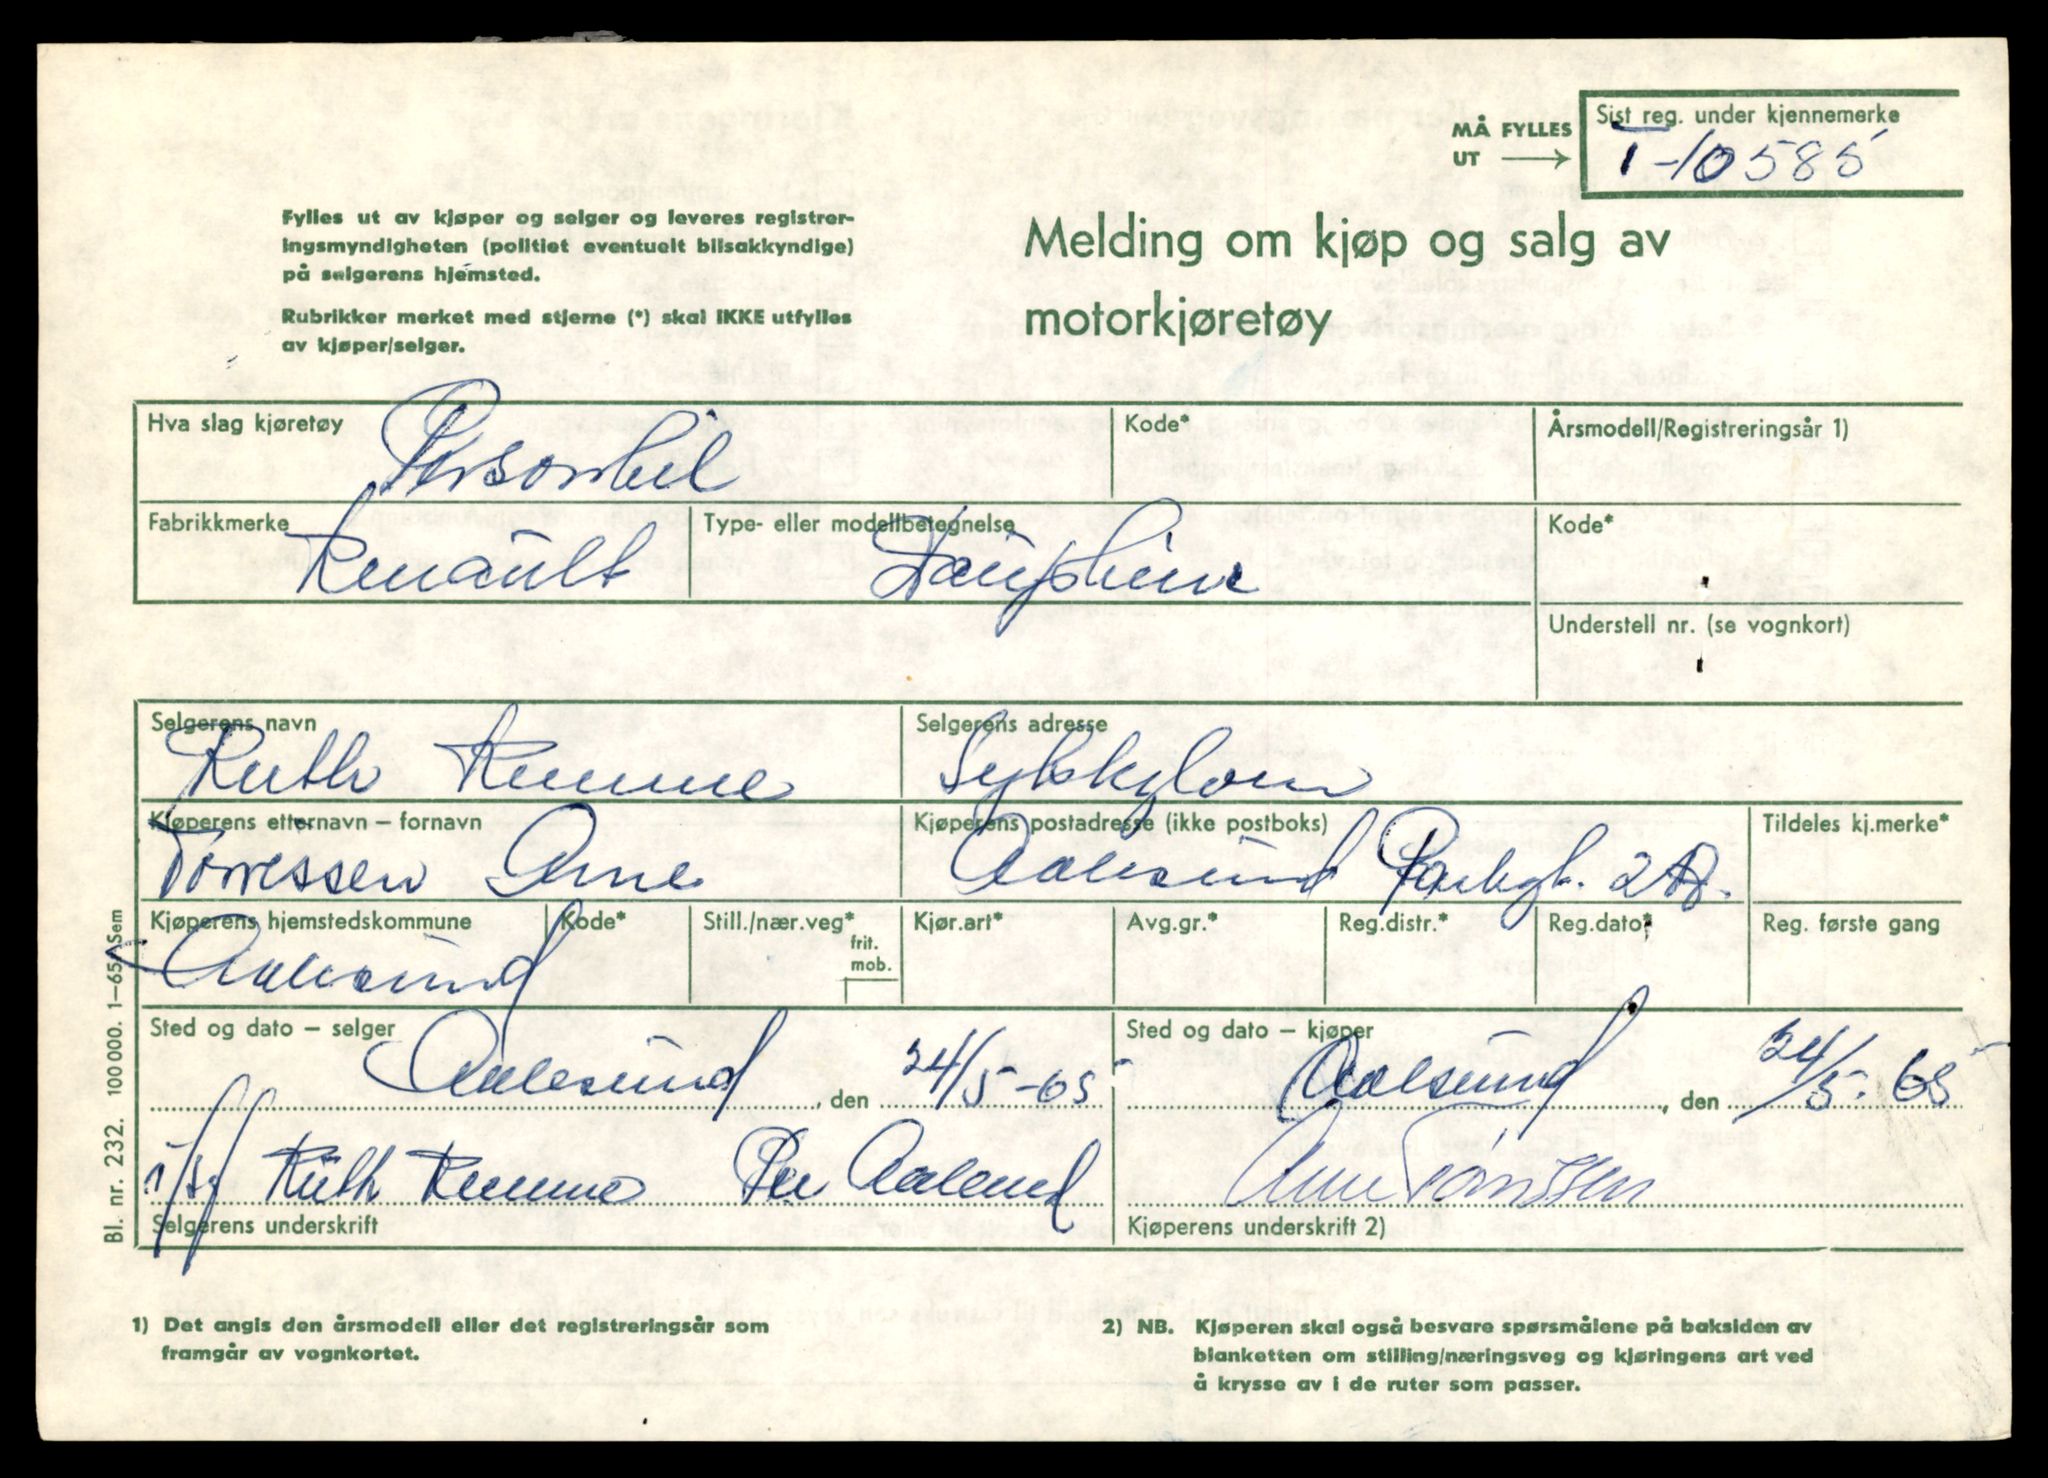 MÅ FYLLES
UT
Sist reg. under kjennemerke
T-10585
Fylles ut av kjøper og selger og leveres registrer-
ingsmyndigheten (politiet eventuelt bilsakkyndige)
på selgerens hjemsted.
Rubrikker merket med stjerne (*) skal IKKE utfylles
av kjøper/selger.
Melding om kjøp og salg av
motorkjøretøy
Hva slag kjøretøy Personbil Kode* Årsmodell/Registreringsår 1)
Fabrikkmerke Renault Type- eller modellbetegnelse Dauphine Kode*
Understell nr. (se vognkort)
Selgerens navn Selgerens adresse
Ruth Remme Sykkylven
Kjøperens etternavn – fornavn Kjøperens postadresse (ikke postboks) Tildeles kj.merke*
Tørressen Arne Aalesund Parkgt. 2
Kjøperens hjemstedskommune Kode* Still./nær.veg* frit. mob. Kjør.art* Avg.gr.* Reg.distr.* Reg.dato* Reg. første gang
Aalesund
Sted og dato – selger Sted og dato – kjøper
Aalesund, den 24/5-65 Aalesund, den 24/5-65
Ruth Remme Per Aalund Arne Tørressen
Selgerens underskrift Kjøperens underskrift 2)
Bl. nr. 232. 100 000. 1–65. Sem
1) Det angis den årsmodell eller det registreringsår som
framgår av vognkortet.
2) NB. Kjøperen skal også besvare spørsmålene på baksiden av
blanketten om stilling/næringsveg og kjøringens art ved
å krysse av i de ruter som passer.